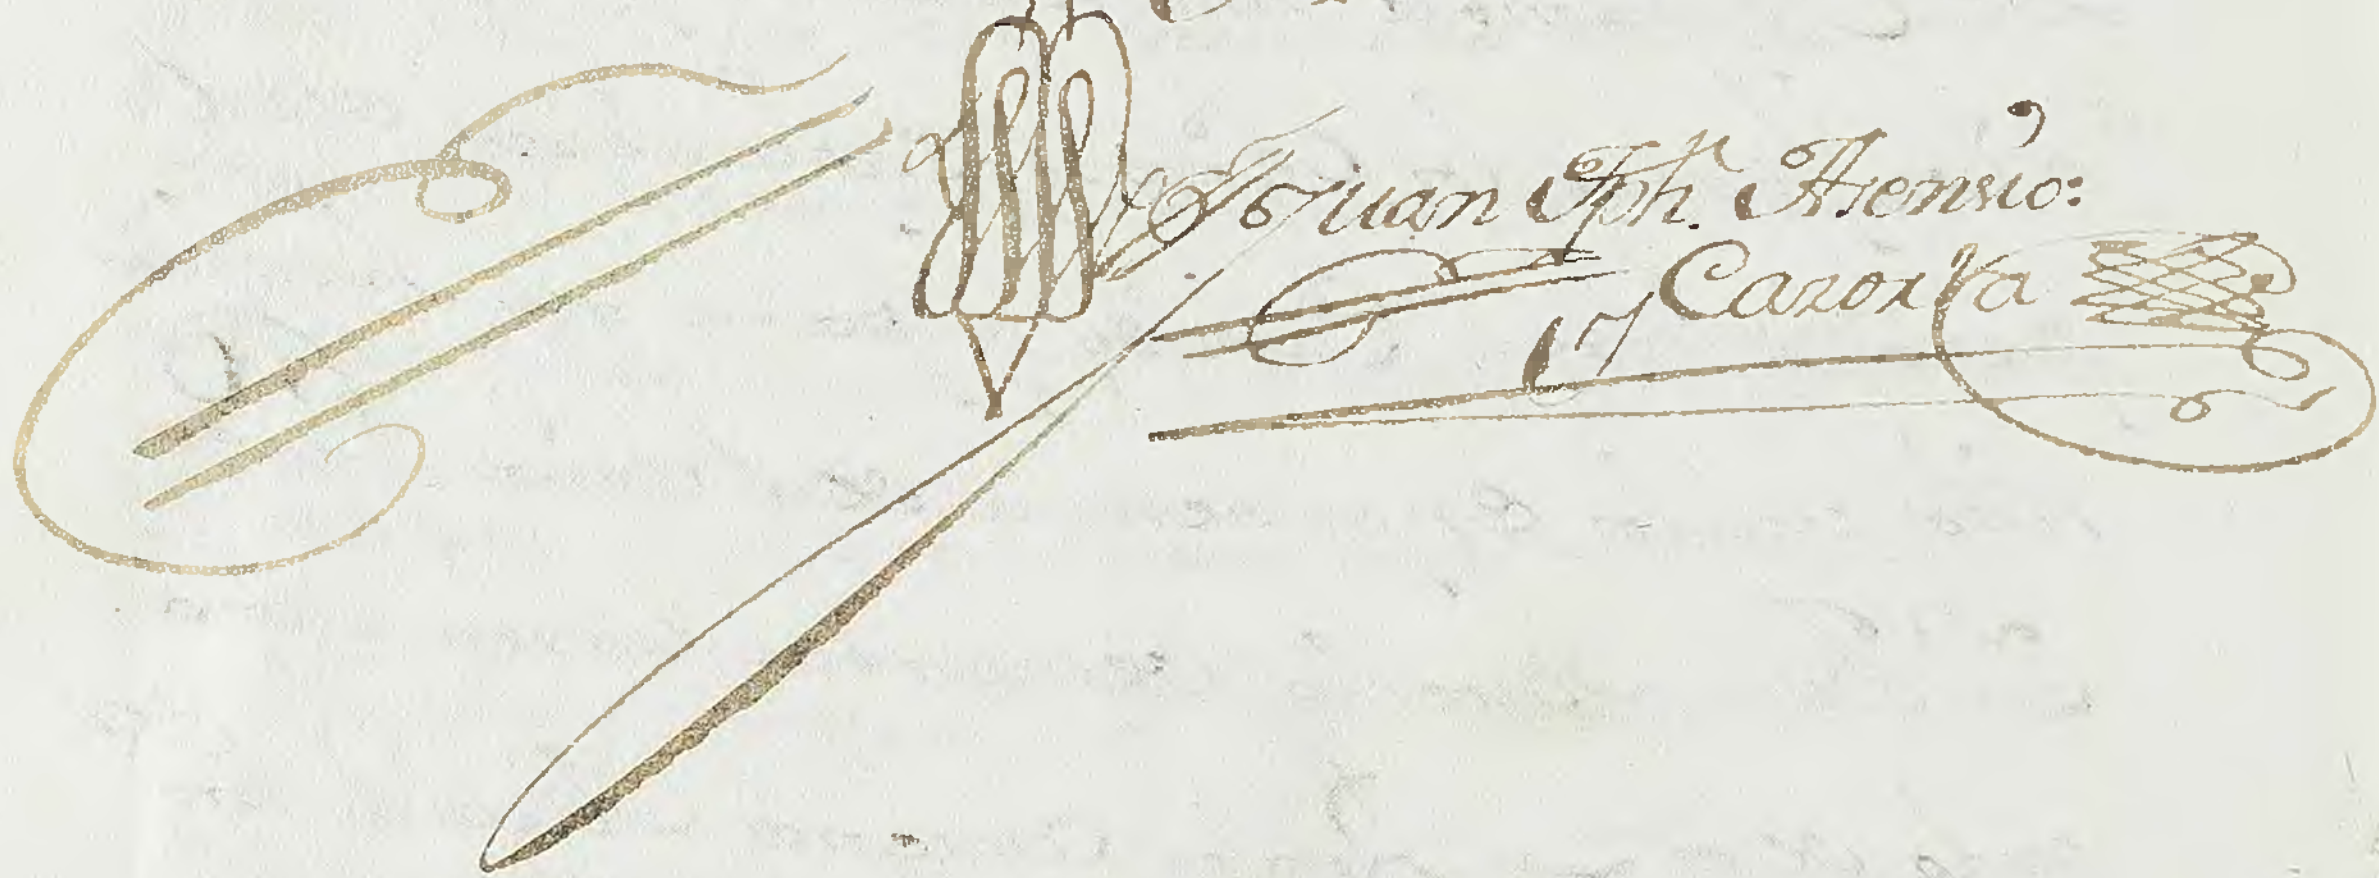 Juan Jph. Asensio:
y Cazorla